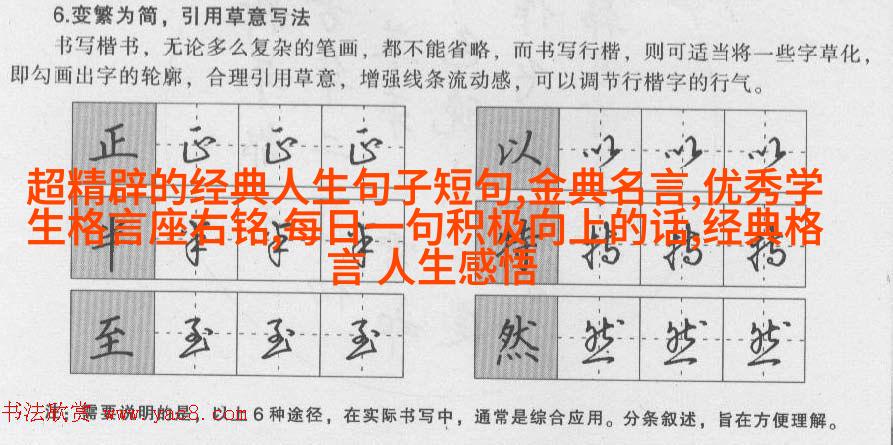 6.变繁为简，引用草意写法
书写楷书，无论多么复杂的笔画，都不能省略，而书写行楷，则可适当将一些字草化，
即勾画出字的轮廓，合理引用草意，增强线条流动感，可以调节行楷字的行气。
正 正 正 正 以 以 以 以
超精辟的经典人生句子短句,金典名言,优秀学
生格言座右铭,每日一句积极向上的话,经典格
言 人生感悟
半 半 半 半
至 至 至 至 然 然 然 然
书法欣赏 www.yac8.com
注：需要说明的是，以上6种途径，在实际书写中，通常是综合应用。分条叙述，旨在方便理解。